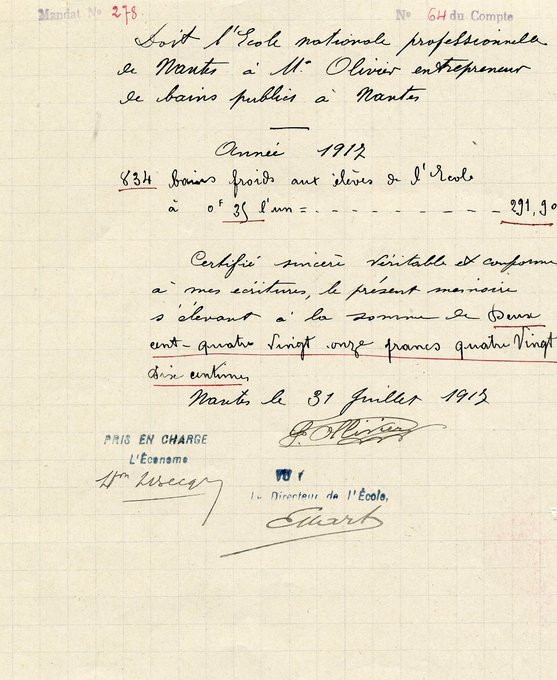 Mandat No 278
No 64 du Compte
Doit l'Ecole nationale professionnelle
de Nantes à Mr Olivier entrepreneur
de bains publics à Nantes
Année 1917
834 bains froids aux élèves de l'Ecole
à 0f 35 l'un = . - - - - - - - 291,90
Certifié sincère véritable et conforme
à mes ecritures, le présent memoire
s'élevant à la somme de Deux
cent-quatre vingt onze francs quatre Vingt
Dix centimes
Nantes le 31 Juillet 1917
PRIS EN CHARGE
L'Économe
VU
Le Directeur de l'École,